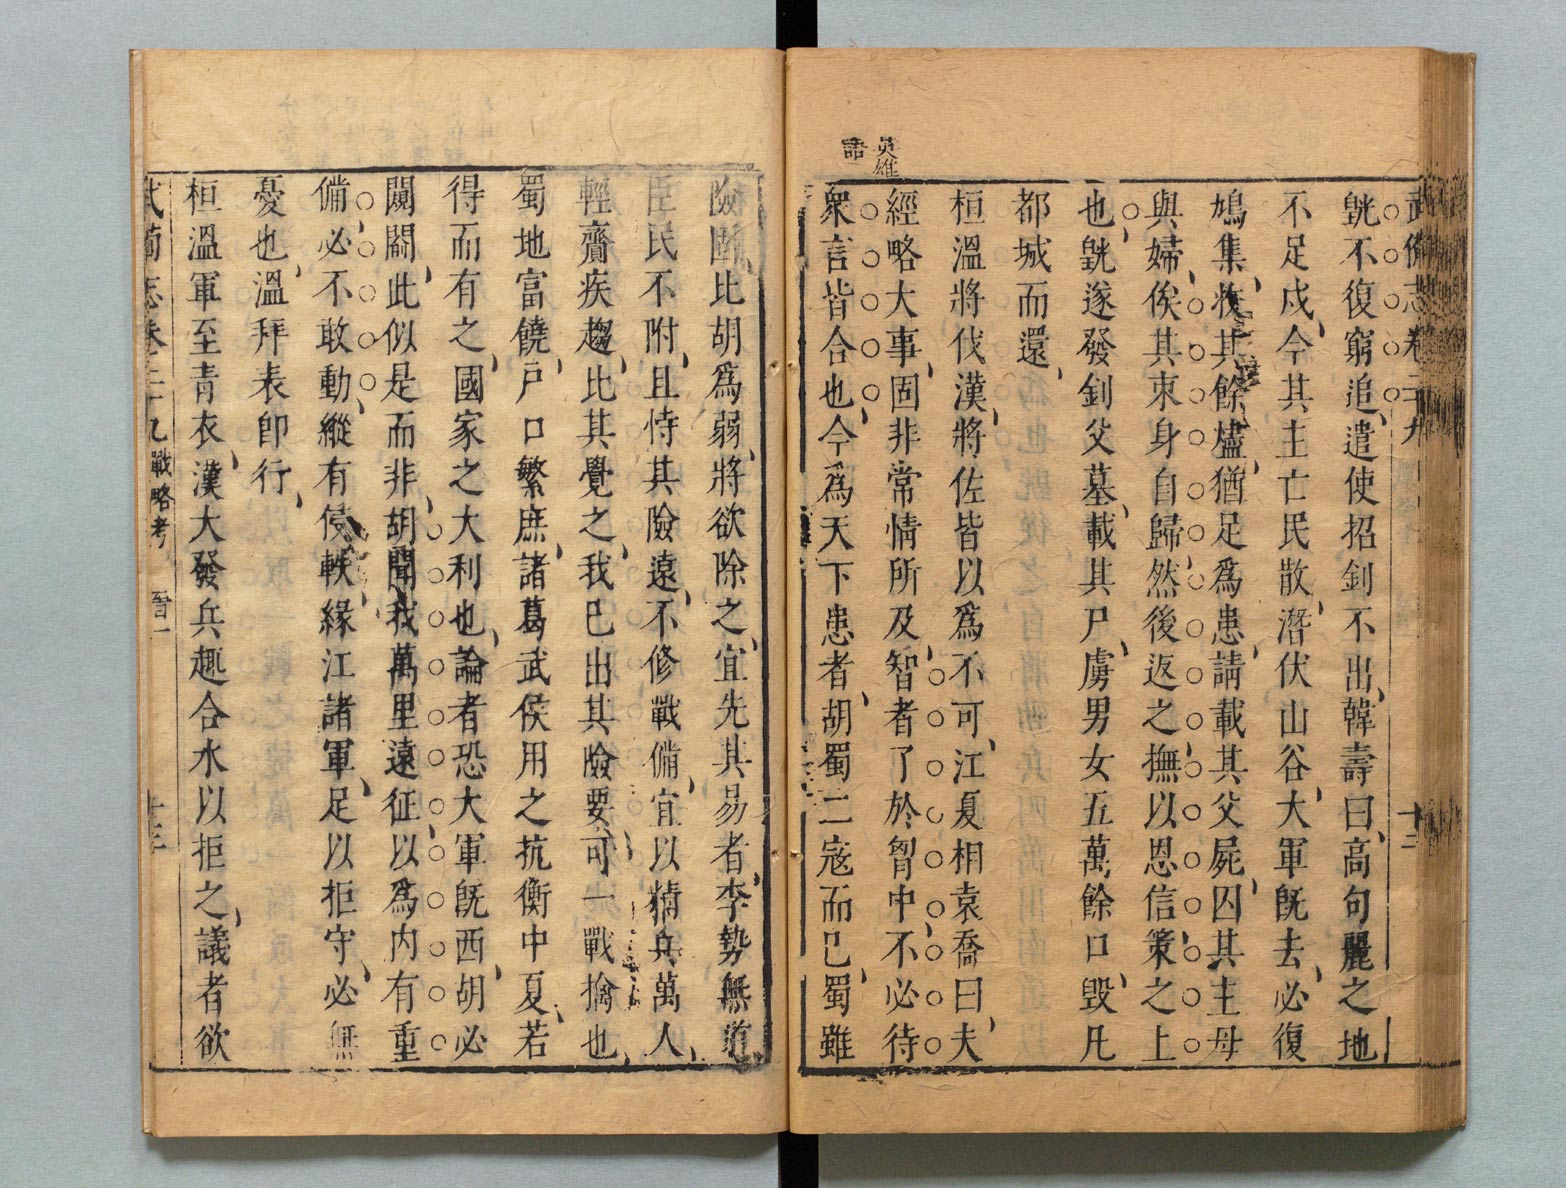 武備志卷二十九
十三
皝不復窮追遣使招釗不出韓壽曰高句麗之地
不足戍今其主亡民散潛伏山谷大軍旣去必復
鳩集收其餘燼猶足爲患請載其父屍囚其主母
與婦俟其束身自歸然後返之撫以恩信策之上
也皝遂發釗父墓載其尸虜男女五萬餘口毀凡
都城而還
桓溫將伐漢將佐皆以爲不可江夏相袁喬曰夫
英雄
語
經略大事固非常情所及智者了於胷中不必待
衆言皆合也今爲天下患者胡蜀二寇而已蜀雖
險固比胡爲弱將欲除之宜先其易者李勢無道
臣民不附且恃其險遠不修戰備宜以精兵萬人
輕齎疾趨比其覺之我已出其險要可一戰擒也
蜀地富饒戶口繁庶諸葛武侯用之抗衡中夏若
得而有之國家之大利也論者恐大軍旣西胡必
闚闟此似是而非胡聞我萬里遠征以爲内有重
備必不敢動縱有侵軼緣江諸軍足以拒守必無
憂也溫拜表卽行
桓溫軍至青衣漢大發兵趣合水以拒之議者欲
武備志卷二十九 戰略考 晉一 十三